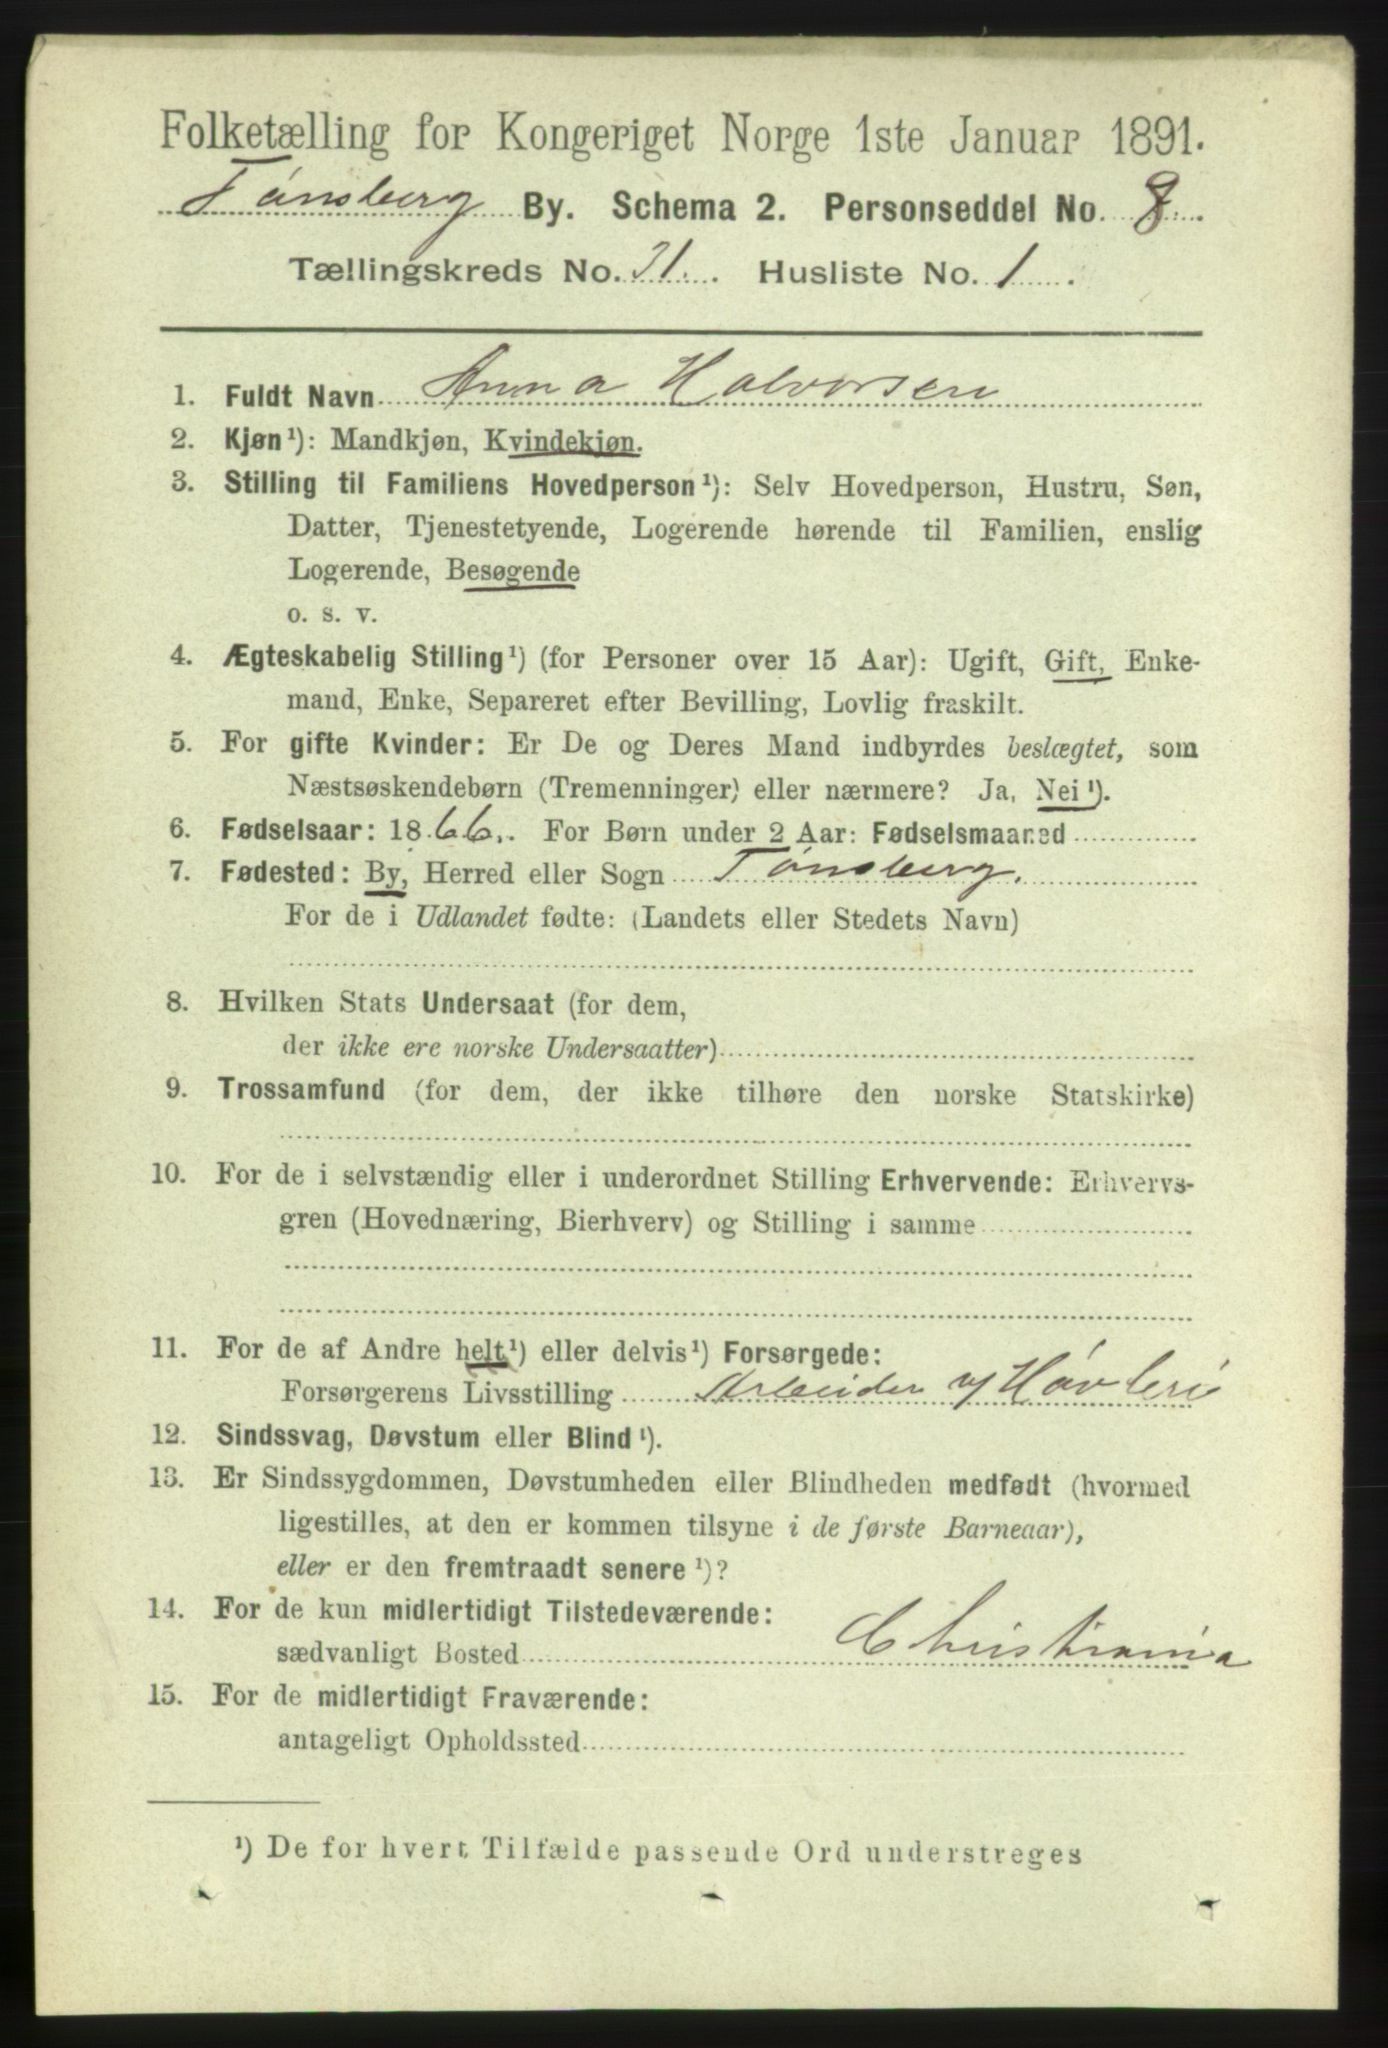 Folketælling for Kongeriget Norge 1ste Januar 1891.
Tønsberg By. Schema 2. Personseddel No. 8.
Tællingskreds No. 21. Husliste No. 1.
1. Fuldt Navn Anna Halvorsen
2. Kjøn¹): Mandkjøn, Kvindekjøn.
3. Stilling til Familiens Hovedperson¹): Selv Hovedperson, Hustru, Søn,
Datter, Tjenestetyende, Logerende hørende til Familien, enslig
Logerende, Besøgende
o. s. v.
4. Ægteskabelig Stilling¹) (for Personer over 15 Aar): Ugift, Gift, Enke-
mand, Enke, Separeret efter Bevilling, Lovlig fraskilt.
5. For gifte Kvinder: Er De og Deres Mand indbyrdes beslægtet, som
Næstsøskendebørn (Tremenninger) eller nærmere? Ja, Nei¹).
6. Fødselsaar: 1866. For Børn under 2 Aar: Fødselsmaaned
7. Fødested: By, Herred eller Sogn Tønsberg.
For de i Udlandet fødte: (Landets eller Stedets Navn)
8. Hvilken Stats Undersaat (for dem,
der ikke ere norske Undersaatter)
9. Trossamfund (for dem, der ikke tilhøre den norske Statskirke)
10. For de i selvstændig eller i underordnet Stilling Erhvervende: Erhvervs-
gren (Hovednæring, Bierhverv) og Stilling i samme
11. For de af Andre helt¹) eller delvis¹) Forsørgede:
Forsørgerens Livsstilling Arbeider v/ Høvleri
12. Sindssvag, Døvstum eller Blind¹).
13. Er Sindssygdommen, Døvstumheden eller Blindheden medfødt (hvormed
ligestilles, at den er kommen tilsyne i de første Barneaar),
eller er den fremtraadt senere¹)?
14. For de kun midlertidigt Tilstedeværende:
sædvanligt Bosted Christiania
15. For de midlertidigt Fraværende:
antageligt Opholdssted
¹) De for hvert Tilfælde passende Ord understreges